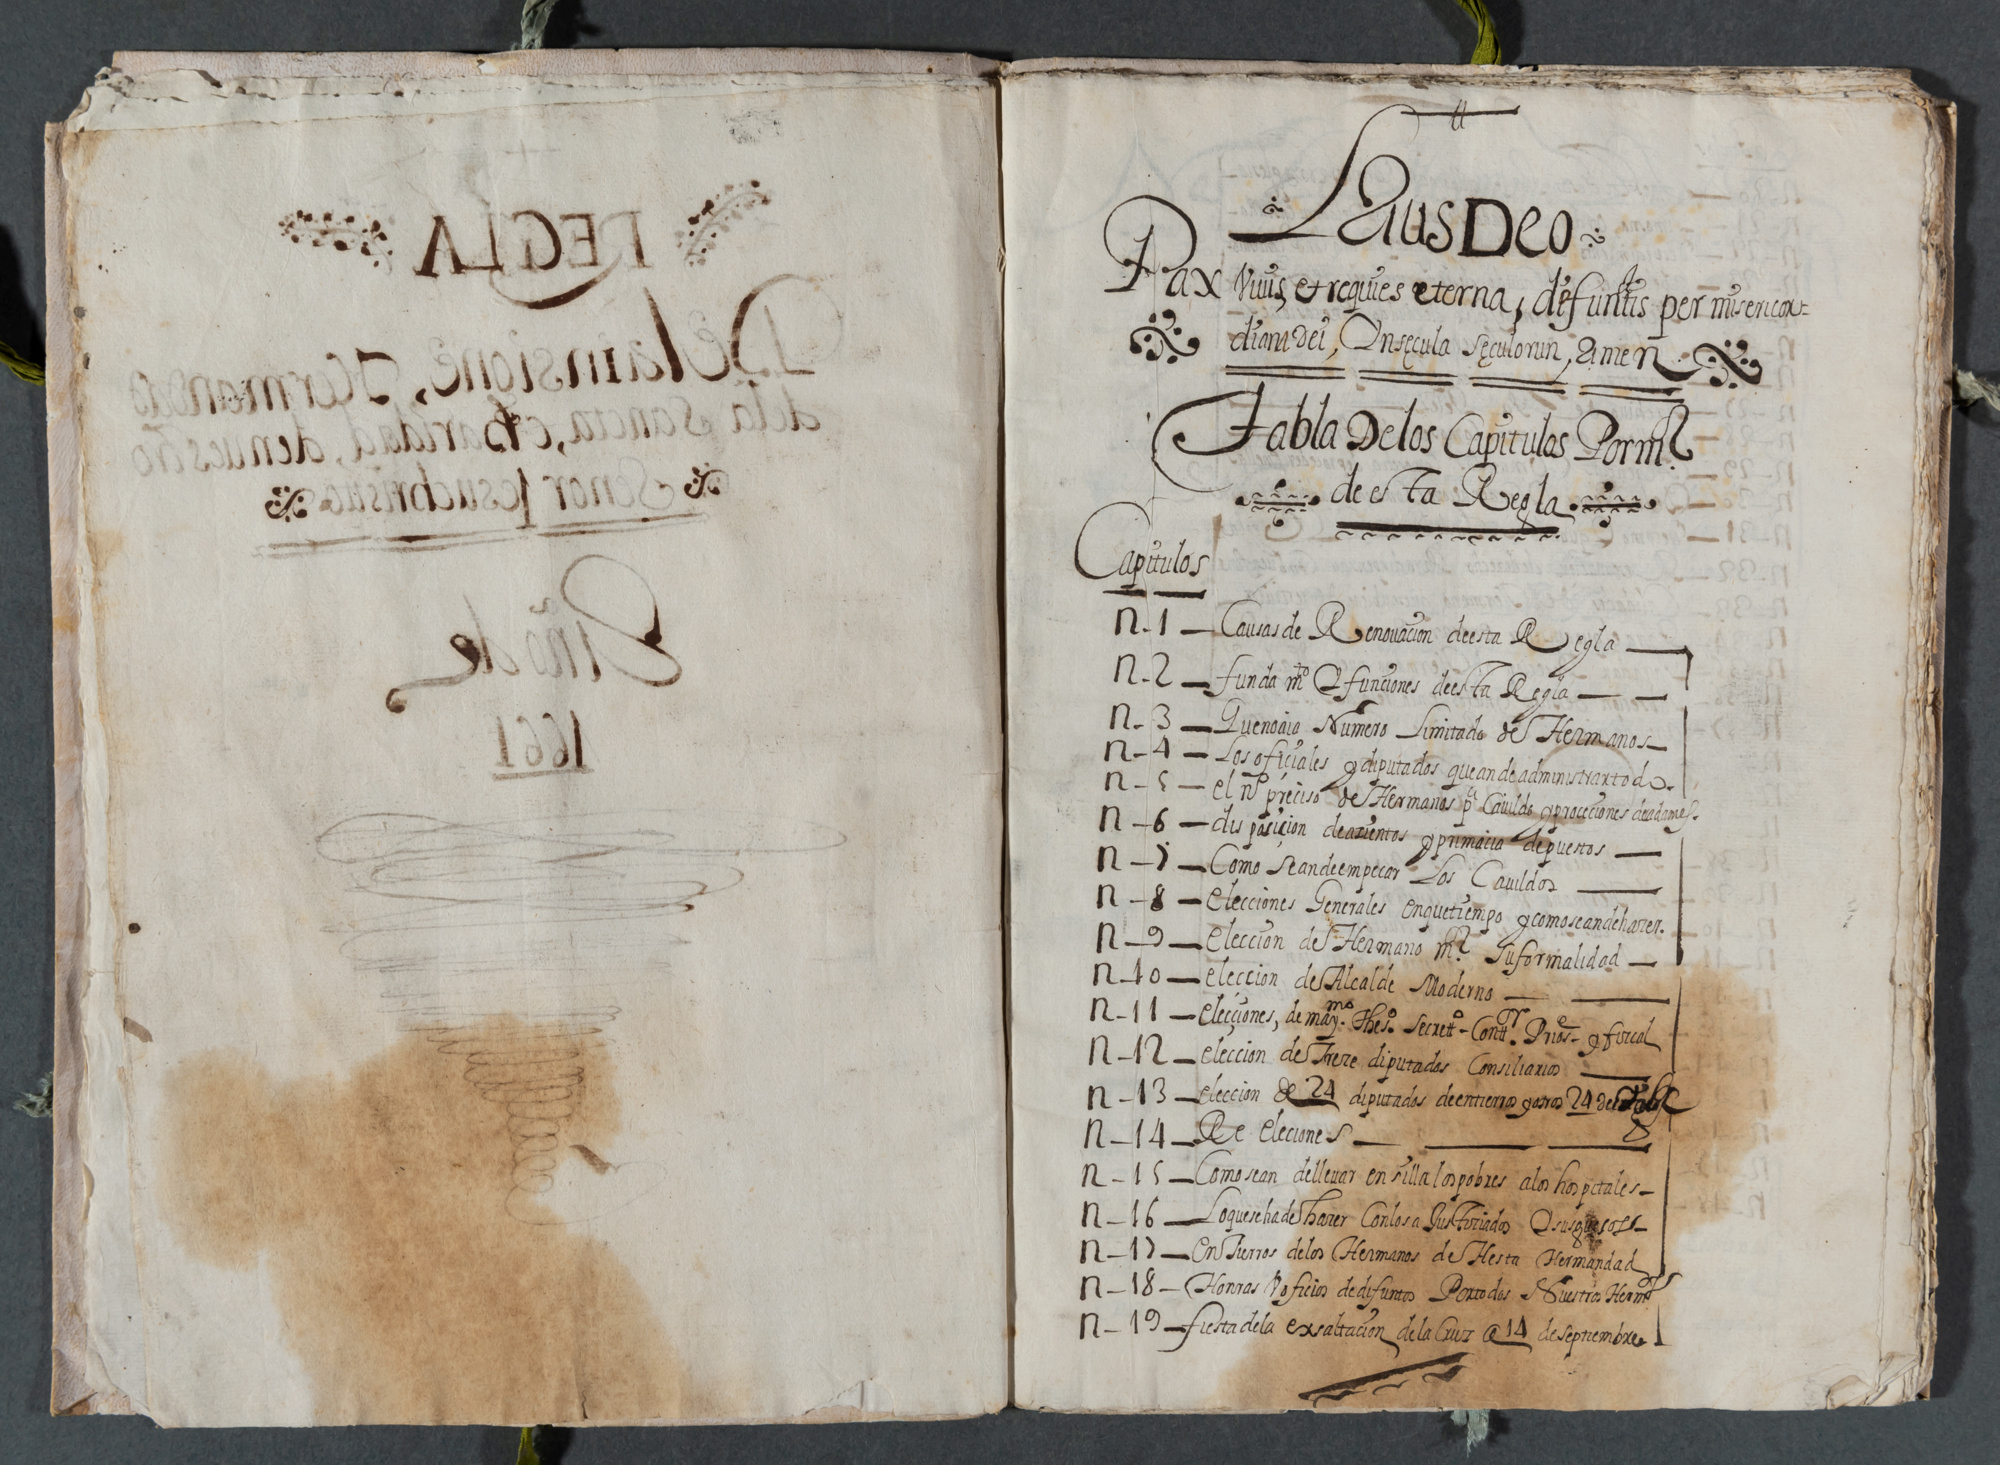 REGLA
De la insigne, Hermandad
dela Sancta, charidad, denuestro
Senor Jesuchristo
Año de
1661
Laus Deo
Pax Viuis, et requies eterna, defunctis per misericor=
diam dei, In secula seculorun, Amen.
Tabla De los Capitulos Por mr
de esta Regla
Capitulos
n-1 — Causas de Renouacion de esta Regla
n-2 — funda mto I funciones de esta Regla
n-3 — Que no aia Numero Limitado de Hermanos
n-4 — Los oficiales y diputados que an de administrar todo.
n-5 — el no preciso de Hermanos pa Cauildo y proceciones de
n-6 — disposicion de asientos y primacia de puestos
n-7 — Como se an de empeçar Los Cauildos
n-8 — elecciones Generales en que tiempo y como se an de hazer.
n-9 — eleccion de Hermano mr Su formalidad
n-10 — eleccion de Alcalde Moderno
n-11 — elecciones, de maymo. Theso. Secretto- Contr. Prios- y fiscal
n-12 — eleccion de Treze diputados Consiliarios
n-13 — eleccion de 24 diputados de entierros y otros 24 de
n-14 — Re elecciones
n-15 — Como se an de lleuar en silla los pobres a los hospitales
n-16 — Lo que se ha de hazer Con los a Justiciados I sus guesos
n-17 — entierros de los Hermanos de Hesta Hermandad
n-18 — Honras Y oficios de difuntos Por todos Nuestros Hermos
n-19 — fiesta de la exsaltacion de la Cruz a 14 de septiembre